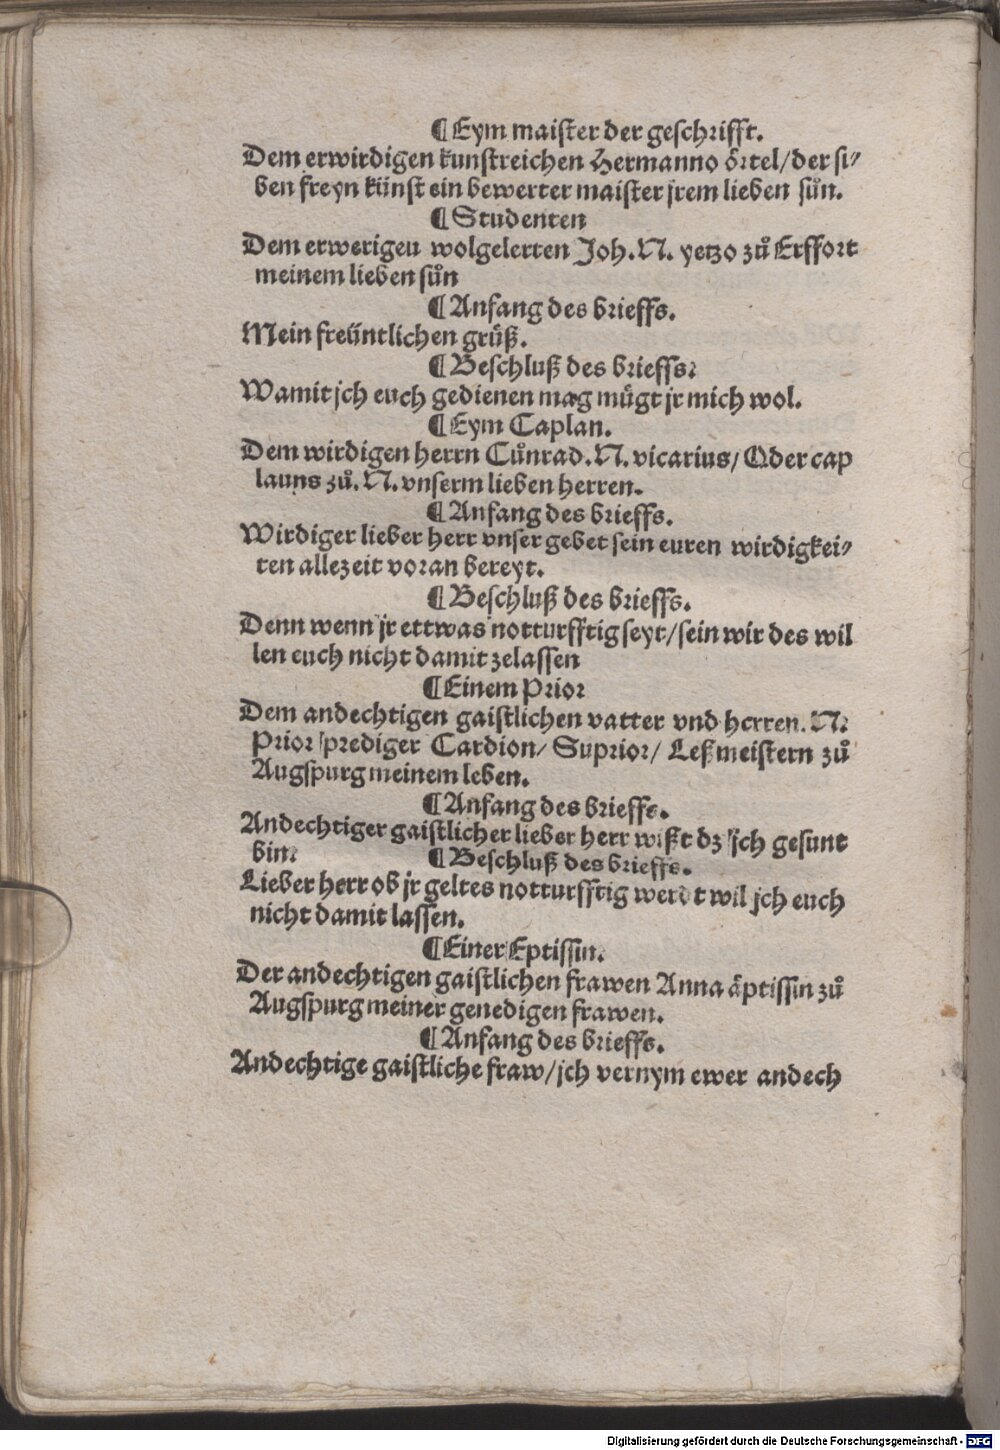 ¶ Eym maister der geschrifft.
Dem erwirdigen kunstreichen Hermanno örtel/ der si⸗
ben freyn künst ein bewerter maister jrem lieben sůn.
¶ Studenten
Dem erwerigeu wolgelerten Joh. N. yetzo zů Erffort
meinem lieben sůn
¶ Anfang des brieffs.
Mein freüntlichen grůß.
¶ Beschluß des brieffs:
Wamit jch euch gedienen mag mügt jr mich wol.
¶ Eym Caplan.
Dem wirdigen herrn Cůnrad. N. vicarius/ Oder cap
launs zů. N. vnserm lieben herren.
¶ Anfang des brieffs.
Wirdiger lieber herr vnser gebet sein euren wirdigkei⸗
ten allezeit voran bereyt.
¶ Beschluß des brieffs.
Denn wenn jr ettwas notturfftig seyt/ sein wir des wil
len euch nicht damit zelassen
¶ Einem Prior
Dem andechtigen gaistlichen vatter vnd herren. N.
Prior prediger Cardion/ Suprior/ Leßmeistern zů
Augspurg meinem leben.
¶ Anfang des brieffs.
Andechtiger gaistlicher lieber herr wißt dz jch gesunt
bin: ¶ Beschluß des brieffs.
Lieber herr ob jr geltes notturfftig werdt wil jch euch
nicht damit lassen.
¶ Einer Eptissin.
Der andechtigen gaistlichen frawen Anna äptissin zů
Augspurg meiner genedigen frawen.
¶ Anfang des brieffs.
Andechtige gaistliche fraw/ jch vernym ewer andech
Digitalisierung gefördert durch die Deutsche Forschungsgemeinschaft - DFG